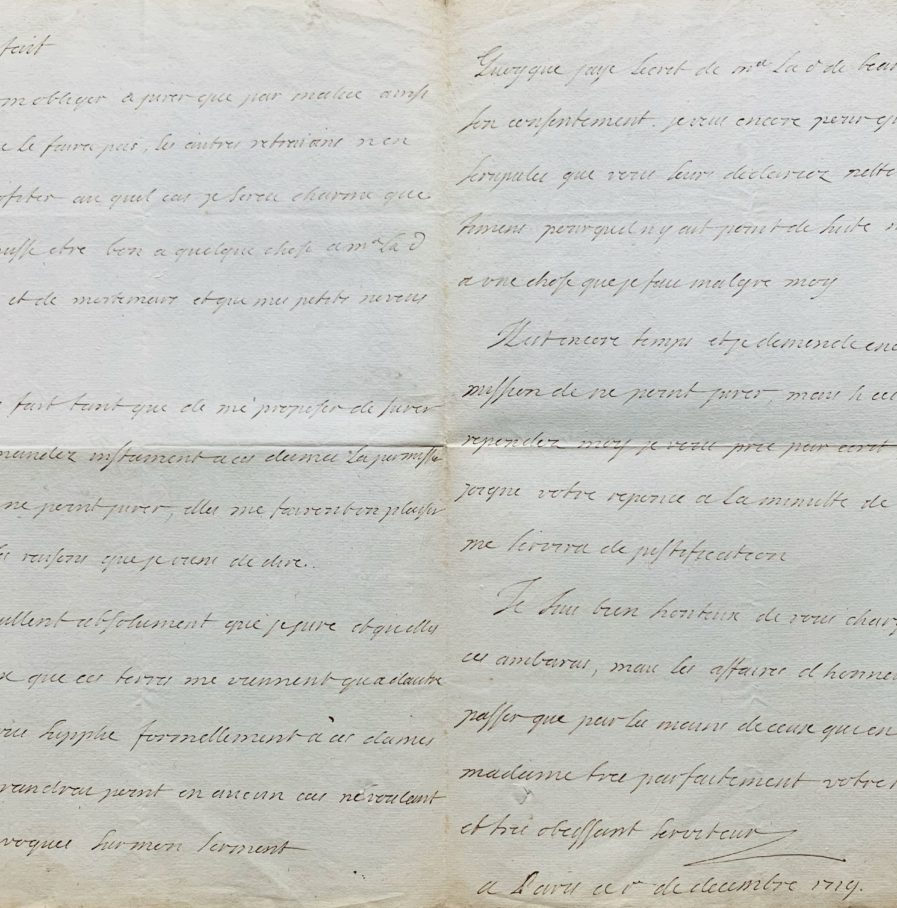 fait
m obliger a jurer que par malice
e le faira pas, les autres retraians n en
ofiter au quel cas je serai charmé que
uisse etre bon a quelque chose a mᵉ la d
et de mortemart et que mes petits neveux
fait tant que de me proposer de jurer
mandez instament a ces dames la permissi
ne point jurer, elles me fairont bon plaisir
es raisons que je viens de dire..
ullent absolument que je jure et quelles
que ces terres me viennent qu a dautre
formellement à ces dames
prandrai point en aucun cas ne voulant
voques sur mon serment
Quoyque jaye lecrit de mᵉ la d de beau
son consentement. je veus encore pour
scrupules que vous leurs declariez nette
timens pour quil n y ait point de suite
a une chose que je fais malgre moy
Il est encore temps et je demende enc
mission de ne point jurer, mais si
repondez moy je vous prie par ecrit
joigne votre reponce a la minutte de
me servira de justification
Je suis bien honteux de vous charg
ces ambaras, mais les affaires d honne
passer que par les mains de ceux que
madame tres parfaitement votre
et tres obeissant serviteur
a Paris ce 1ʳ de decembre 1719.